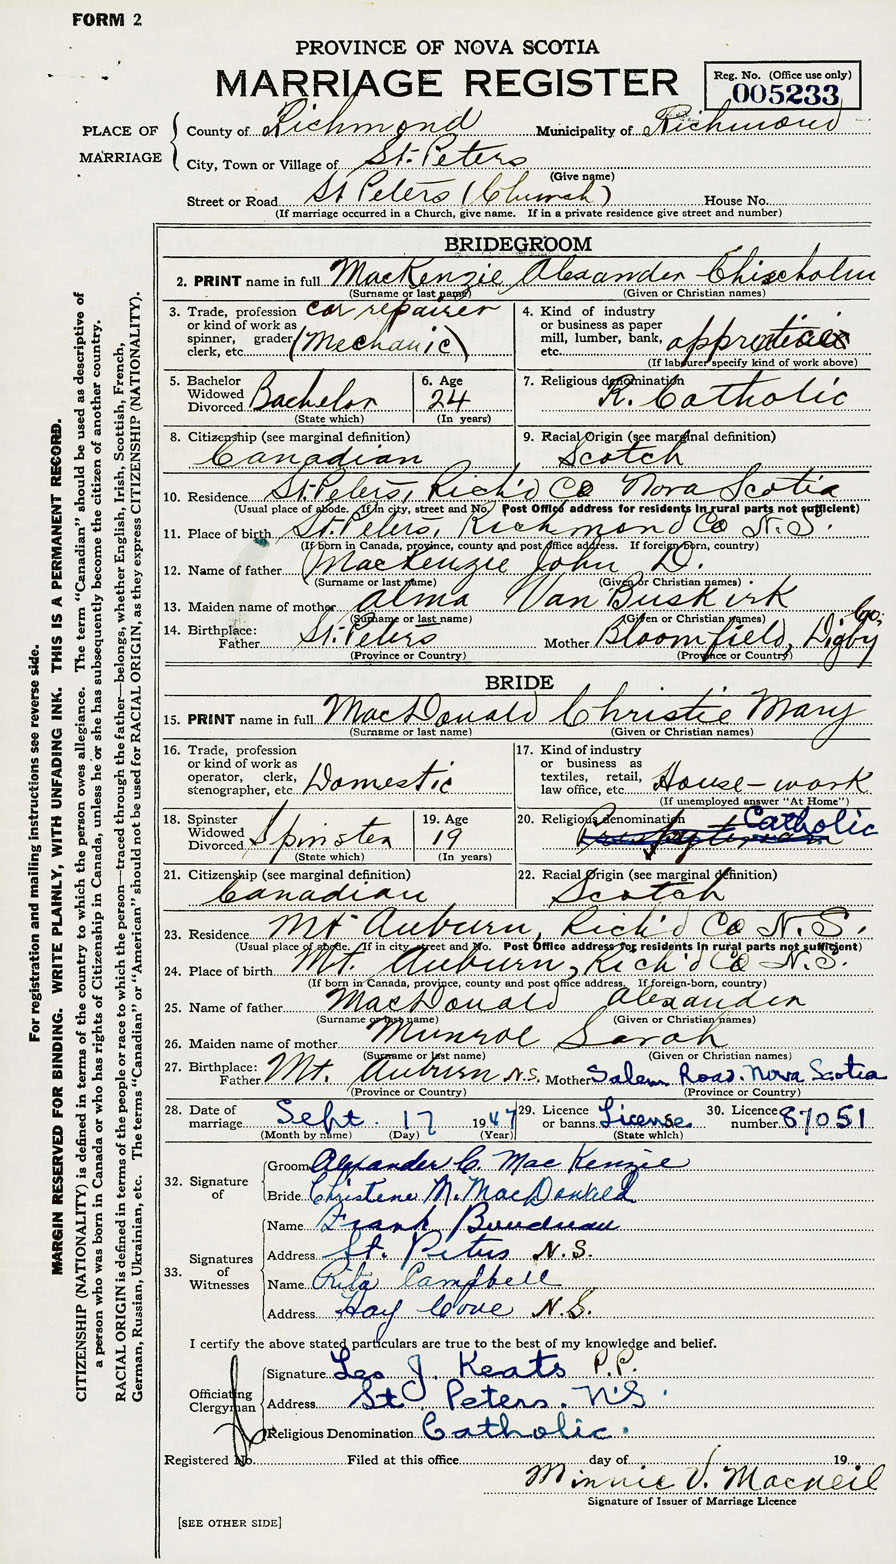 FORM 2
PROVINCE OF NOVA SCOTIA
MARRIAGE REGISTER
Reg. No. (Office use only)
005233
PLACE OF MARRIAGE
County of Richmond Municipality of Richmond
City, Town or Village of St. Peters
(Give name)
Street or Road St Peters (Church) House No.
(If marriage occurred in a Church, give name. If in a private residence give street and number)
BRIDEGROOM
2. PRINT name in full MacKenzie Alexander Chischolm
(Surname or last name) (Given or Christian names)
3. Trade, profession or kind of work as spinner, grader clerk, etc. car repairer (Mechanic)
4. Kind of industry or business as paper mill, lumber, bank, etc.
(If labourer specify kind of work above)
5. Bachelor Widowed Divorced Bachelor
(State which)
6. Age 24
(In years)
7. Religious denomination R. Catholic
8. Citizenship (see marginal definition) Canadian
9. Racial Origin (see marginal definition) Scotch
10. Residence St. Peters, Rich'd Co Nova Scotia
(Usual place of abode. If in city, street and No. Post Office address for residents in rural parts not sufficient)
11. Place of birth St. Peters, Richmond Co N.S.
(If born in Canada, province, county and post office address. If foreign born, country)
12. Name of father MacKenzie John D.
(Surname or last name) (Given or Christian names)
13. Maiden name of mother Alma Van Buskirk
(Surname or last name) (Given or Christian names)
14. Birthplace: Father St. Peters Mother Bloomfield, Digby Co.
(Province or Country) (Province or Country)
BRIDE
15. PRINT name in full MacDonald Christie Mary
(Surname or last name) (Given or Christian names)
16. Trade, profession or kind of work as operator, clerk, stenographer, etc. Domestic
17. Kind of industry or business as textiles, retail, law office, etc. House-work
(If unemployed answer "At Home")
18. Spinster Widowed Divorced Spinster
(State which)
19. Age 19
(In years)
20. Religious denomination Presbyterian Catholic
21. Citizenship (see marginal definition) Canadian
22. Racial Origin (see marginal definition) Scotch
23. Residence Mt Auburn, Rich'd Co N.S.
(Usual place of abode. If in city, street and No. Post Office address for residents in rural parts not sufficient)
24. Place of birth Mt. Auburn, Rich'd Co N.S.
(If born in Canada, province, county and post office address. If foreign-born, country)
25. Name of father MacDonald Alexander
(Surname or last name) (Given or Christian names)
26. Maiden name of mother Munroe Sarah
(Surname or last name) (Given or Christian names)
27. Birthplace: Father Mt. Auburn N.S. Mother Salem Road. Nova Scotia
(Province or Country) (Province or Country)
28. Date of marriage Sept. 17 1947
(Month by name) (Day) (Year)
29. Licence or banns License
(State which)
30. Licence number 87051
32. Signature of
Groom Alexander C. MacKenzie
Bride Christene M. MacDonald
33. Signatures of Witnesses
Name Frank Boudreau
Address St. Peters N.S.
Name Rita Campbell
Address Hay Cove N.S.
I certify the above stated particulars are true to the best of my knowledge and belief.
Officiating Clergyman
Signature Leo J. Keats P.P.
Address St. Peters. N.S.
Religious Denomination Catholic.
Registered No. Filed at this office day of 19
Minnie V. Macneil
Signature of Issuer of Marriage Licence
[SEE OTHER SIDE]
For registration and mailing instructions see reverse side.
MARGIN RESERVED FOR BINDING. WRITE PLAINLY, WITH UNFADING INK. THIS IS A PERMANENT RECORD.
CITIZENSHIP (NATIONALITY) is defined in terms of the country to which the person owes allegiance. The term "Canadian" should be used as descriptive of
a person who was born in Canada or who has rights of Citizenship in Canada, unless he or she has subsequently become the citizen of another country.
RACIAL ORIGIN is defined in terms of the people or race to which the person—traced through the father—belongs, whether English, Irish, Scottish, French,
German, Russian, Ukrainian, etc. The terms "Canadian" or "American" should not be used for RACIAL ORIGIN, as they express CITIZENSHIP (NATIONALITY).